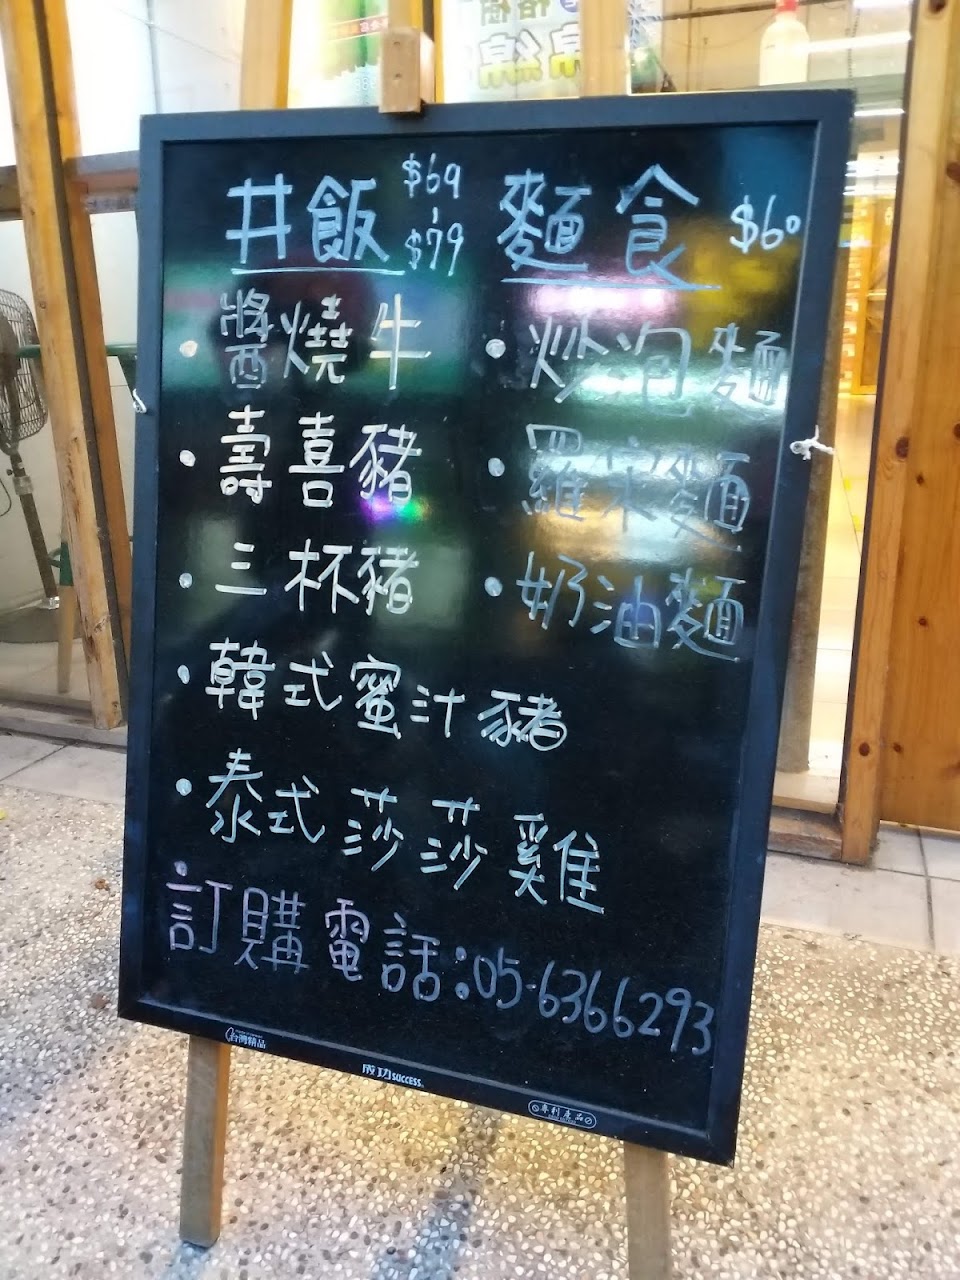 丼飯 $69
$79
・醬燒牛
・壽喜豬
・三杯豬
・韓式蜜汁豬
・泰式莎莎雞
麵食 $60
・炒泡麵
・羅宋麵
・奶油麵
訂購電話:05-6366293
台灣精品
成功SUCCESS
專利產品